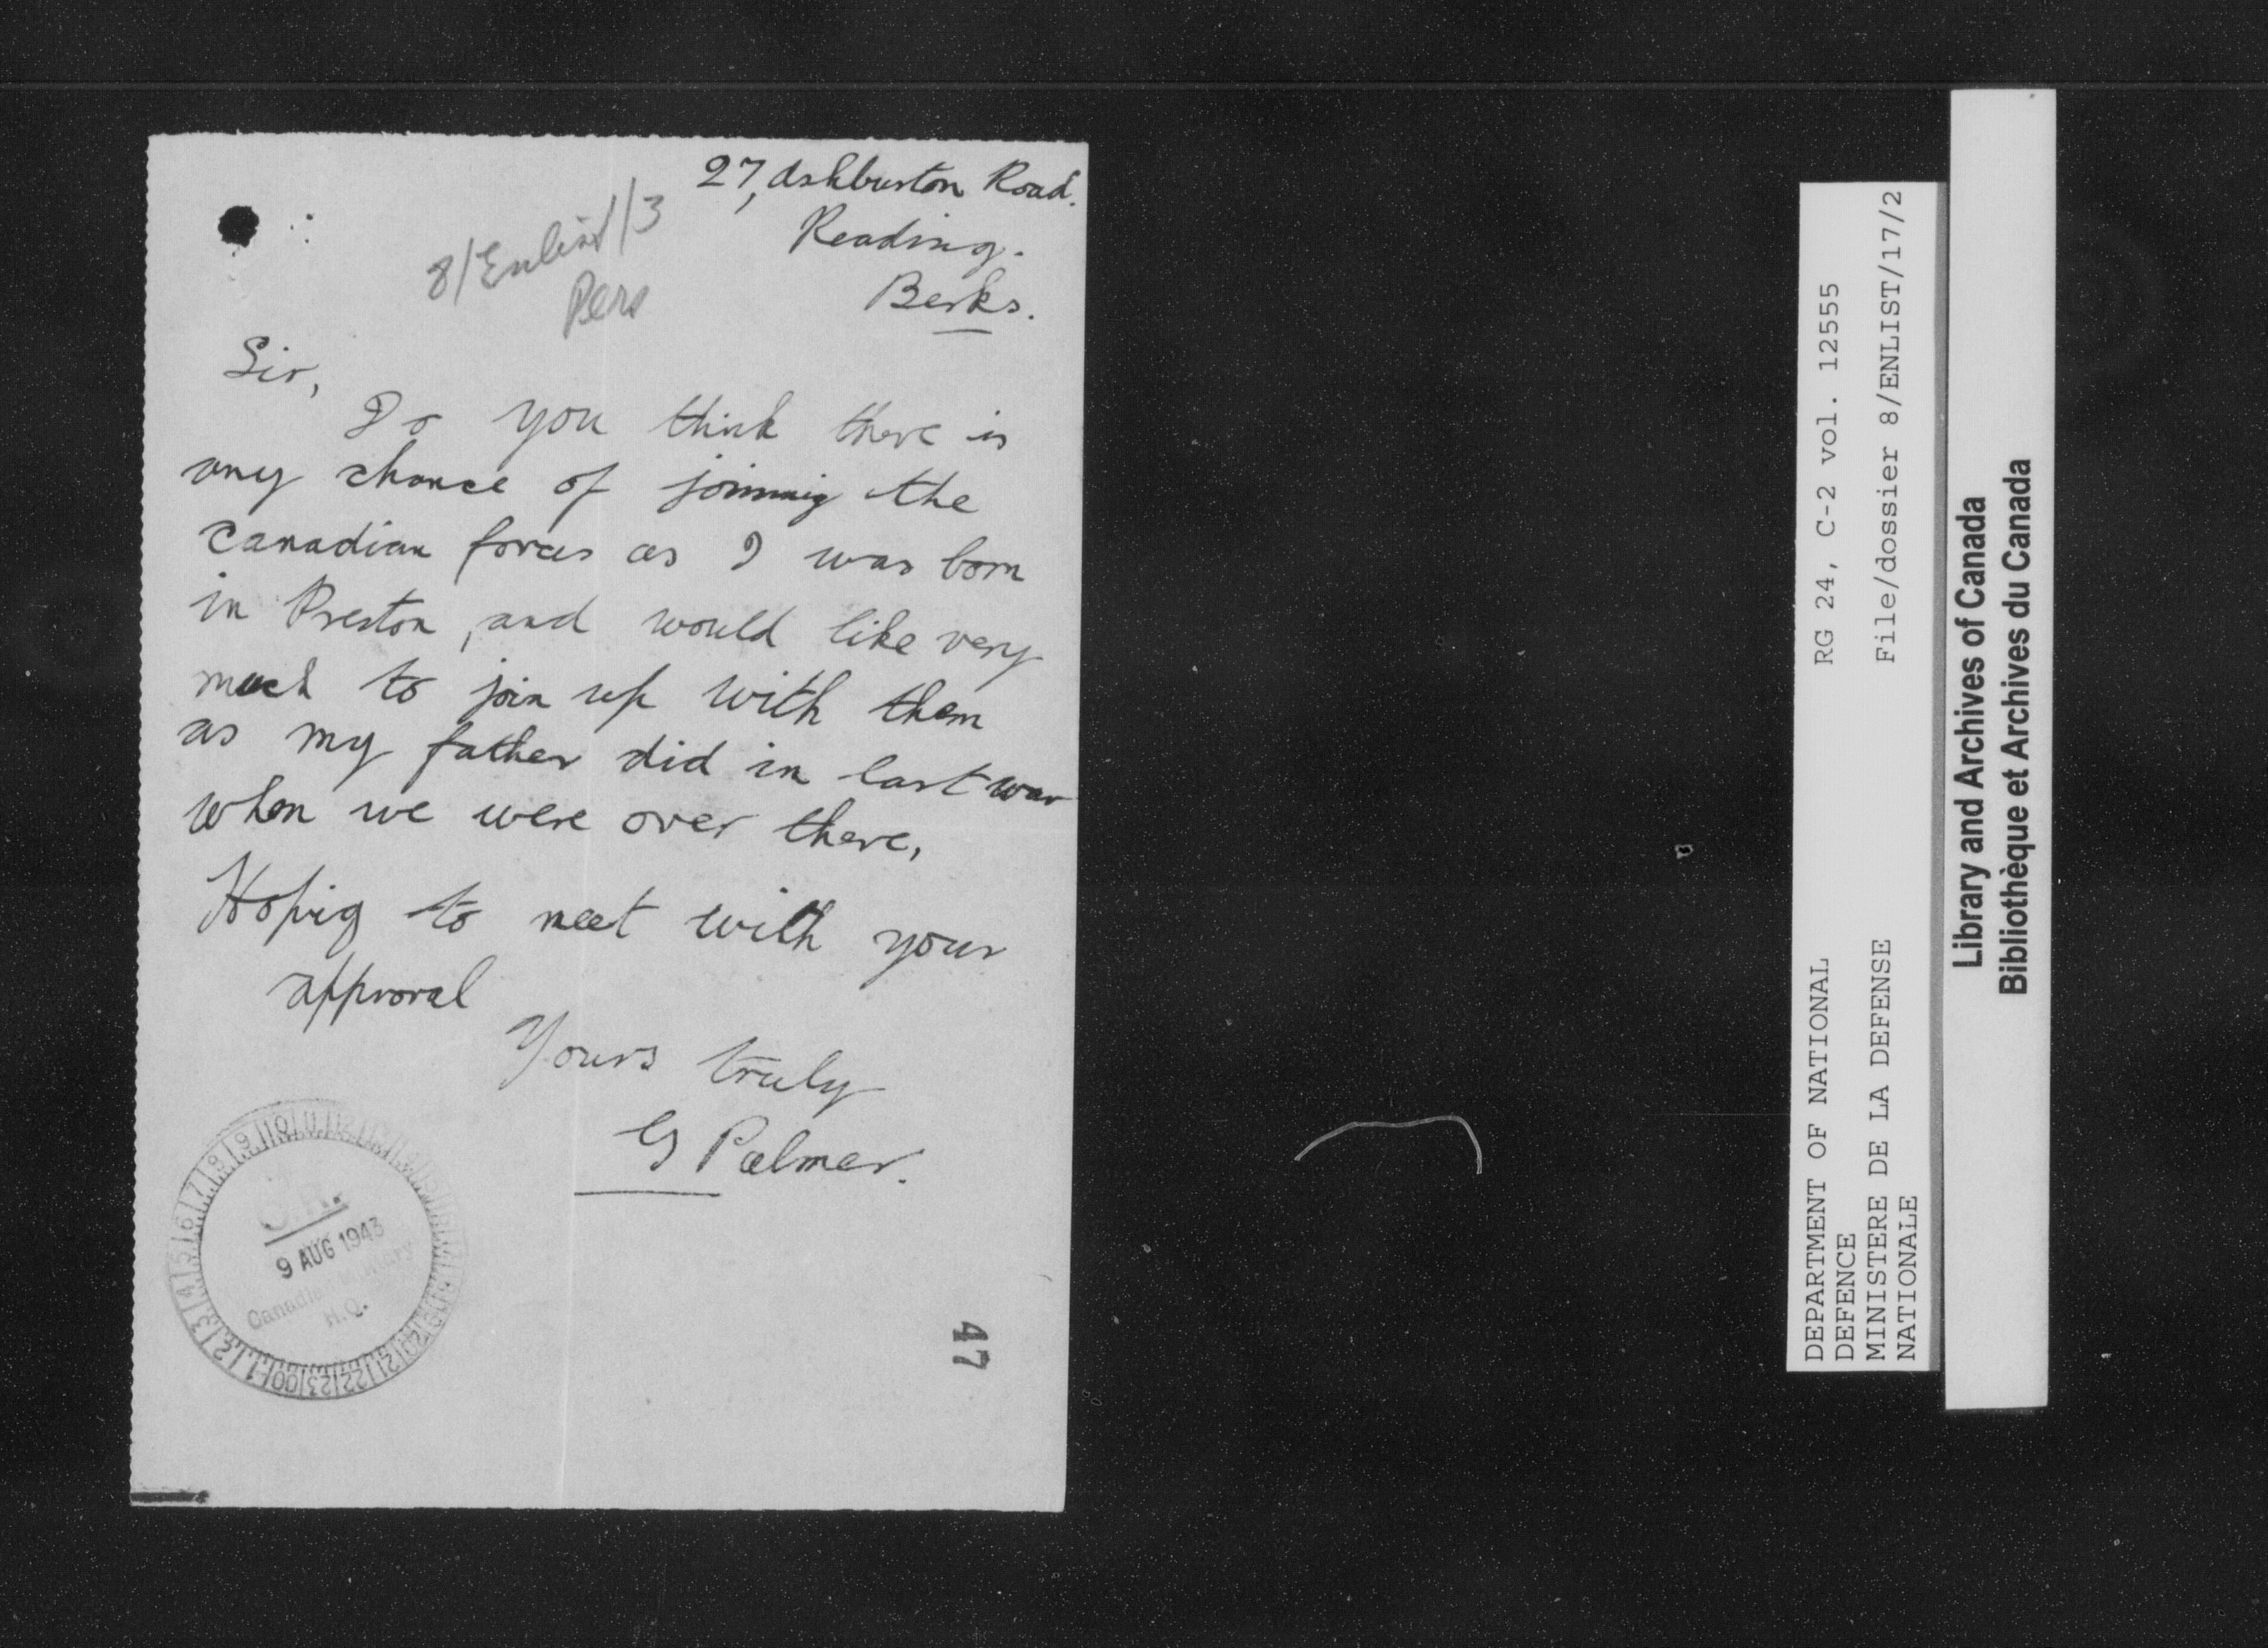 27, Ashburton Road.
Reading.
Berks.
8/Enlist/3
Pers
Sir,
Do you think there is
any chance of joinnig the
Canadian forces as I was born
in Preston, and would like very
much to join up with them
as my father did in last war
when we were over there,
Hopig to meet with your
approval
Yours truly
G Palmer.
9 10 11 12
8
7
6
5
4
3
2
1
00 23 22 21 20 19
9 AUG 1943
Canadian Military
H.Q.
47
RG 24, C-2 vol. 12555
File/dossier 8/ENLIST/17/2
DEPARTMENT OF NATIONAL
DEFENCE
MINISTERE DE LA DEFENSE
NATIONALE
Library and Archives of Canada
Bibliothèque et Archives du Canada